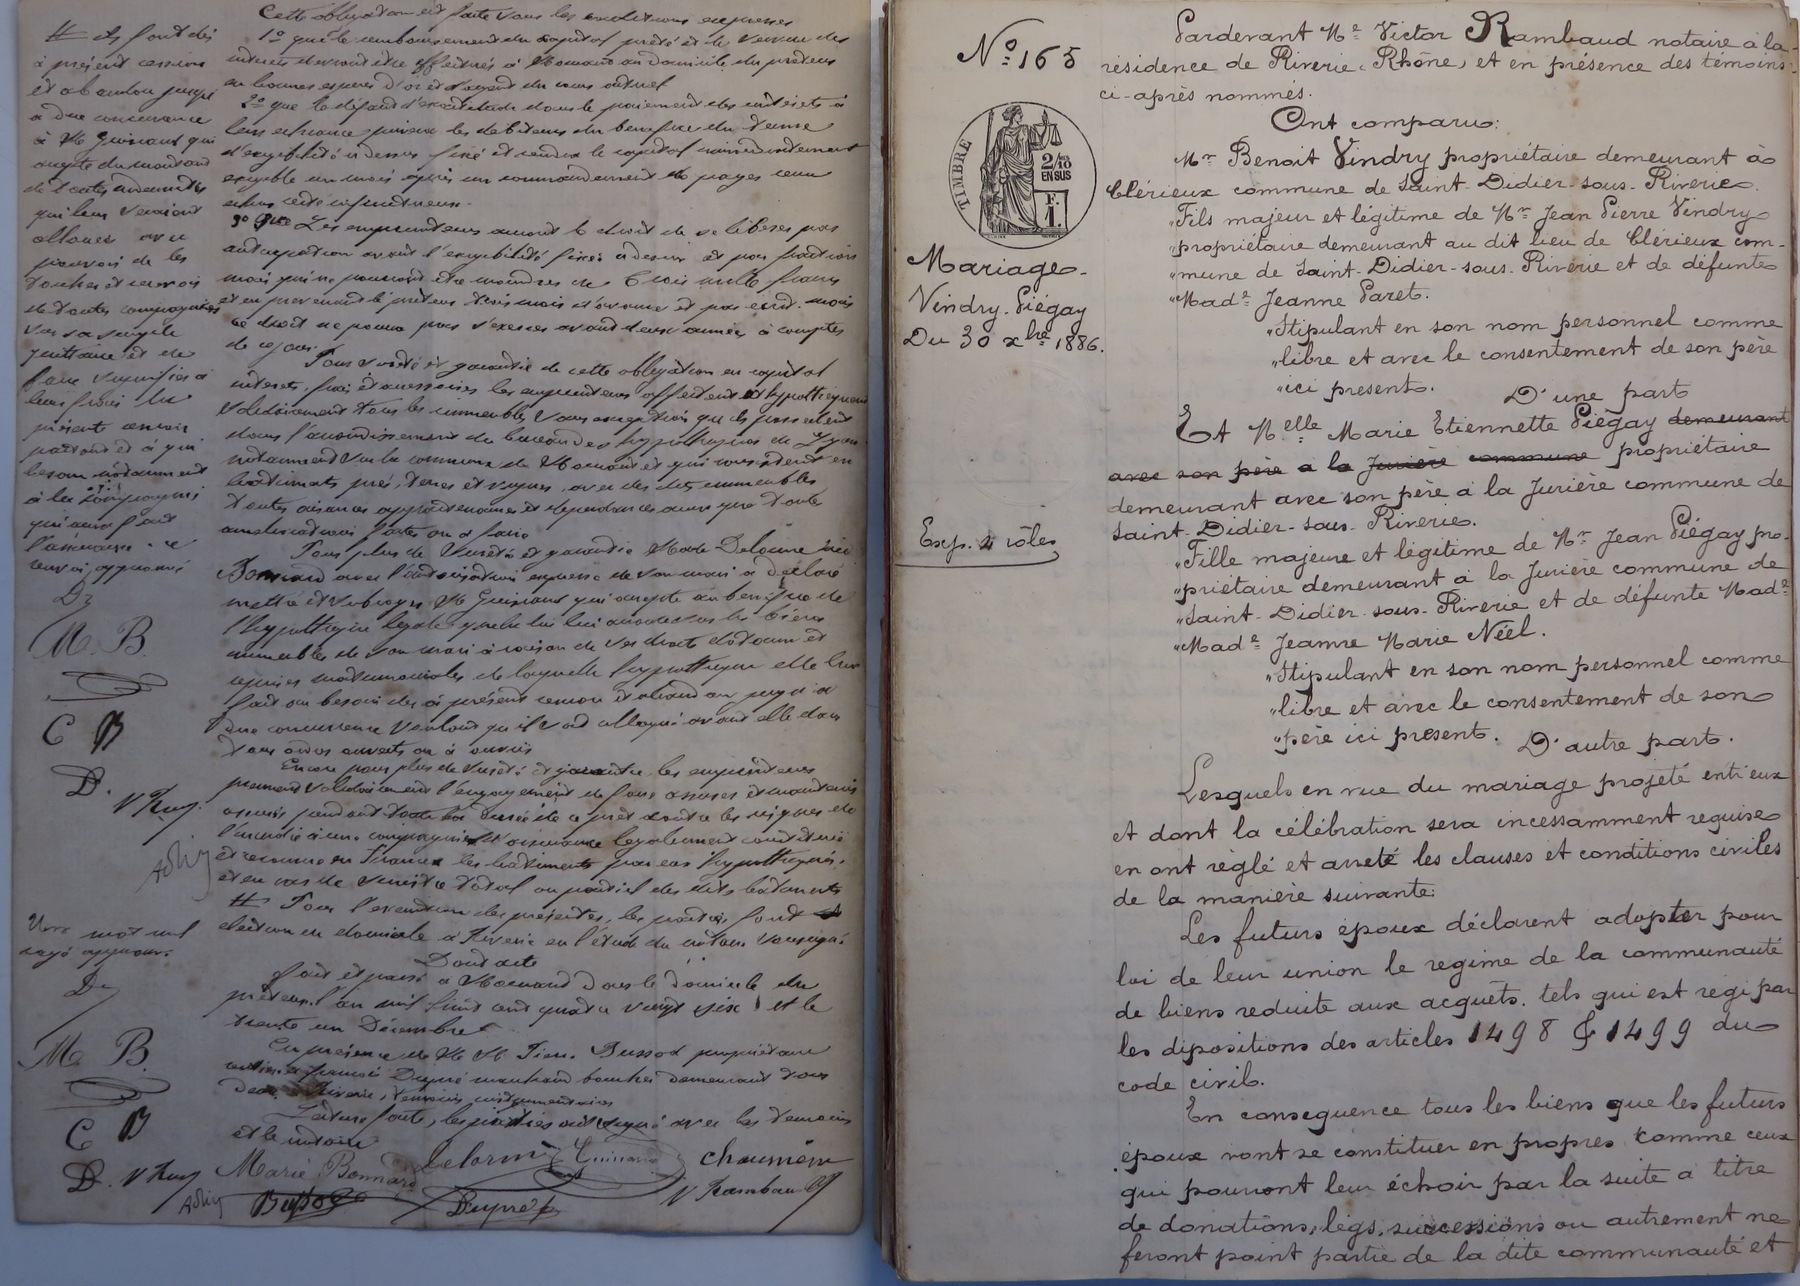 Cette obligation est faite sous les conditions expresses
1º que le remboursement du capital prêté et le service des
intérêts devront être effectués à Mornant au domicile du prêteur
en bonnes espèces d'or et d'argent du cours actuel
2º que le défaut d'exactitude dans le paiement des intérêts à
leur échéance privera les débiteurs du bénéfice du terme
d'exigibilité ci dessus fixé et rendra le capital immédiatement
exigible un mois après un commandement de payer
resté infructueux.
3º Que Les emprunteurs auront le droit de se libérer par
anticipation avant l'exigibilité fixée ci dessus et par fractions
mais qui ne pourront être moindres de trois mille francs
et en prevenant le prêteur trois mois d'avance et par écrit. mais
ce droit ne pourra pas s'exercer avant deux années à compter
de ce jour.
Pour sureté et garantie de cette obligation en capital
intérets, frais et accessoires les emprunteurs affectent et hypothèquent
solidairement tous les immeubles sans exception qu'ils possèdent
dans l'arrondissement du bureau des hypothèques de Lyon
notamment sur la commune de Mornant et qui consistent en
bâtiments, pré, terres et vignes, avec des dits immeubles
toutes aisances appartenances et dépendances ainsi que toute
améliorations faites ou à faire
Pour plus de sureté et garantie Made Delorme née
Bonnard avec l'autorisation expresse de son mari a déclaré
mettre et subroger Mr Guinand qui accepte au bénéfice de
l'hypothèque légale que la loi lui accorde sur les biens
immeubles de son mari à raison de ses droits
reprises matrimoniales de laquelle hypothèque elle leur
fait au besoin dès à présent cession et abandon jusqu'à
due concurrence voulant qu'il soit colloqué avant elle dans
tous ordres ouverts ou à ouvrir
Encore pour plus de sureté et garantie, les emprunteurs
prennent solidairement l'engagement de faire assurer et maintenir
assurés pendant toute la durée de ce prêt contre les risques de
l'incendie à une compagnie d'assurance légalement constituée
et reconnue en France les bâtiments par eux hypothéqués.
et en cas de sinistre total ou partiel des dits bâtiments
# Pour l'exécution des présentes, les parties font
élection en domicile à Riverie en l'étude du notaire soussigné
Dont acte
Fait et passé à Mornant dans le domicile du
prêteur l'an mil huit cent quatre vingt six et le
trente un Décembre
En présence de M M Pierre Bussod propriétaire
rentier et François Dupré marchand boucher demeurant tous
deux à Riverie, témoins instrumentaires
Lecture faite, les parties ont signé avec les témoins
et le notaire
Marie Bonnard Delorme Guinand Chaumeron
Bussod Dupré V Rambaud
# et font dès
à présent cession
et abandon jusqu'
à due concurrence
à Mr Guinand qui
accepte du montant
de toutes indemnités
qui leur seraient
allouées avec
pouvoir de les
toucher et recevoir
de toutes compagnies
sur sa simple
quittance et de
faire signifier à
leurs frais les
présent
partout et à qui
besoin notamment
à la compagnie
qui aura fait
l'assurance. ce
renvoi approuvé
M. B.
C B
D.
Un mot nul
rayé approuvé.
M. B.
C B
D.
Nº 165
TIMBRE
2/10 EN SUS
F. 1.
Mariage
Vindry. Piégay
Du 30 xbre 1886.
Exp. 4 rôles
Pardevant Me Victor Rambaud notaire à la
résidence de Riverie (Rhône) et en présence des témoins
ci-après nommés.
Ont comparu:
Mr Benoit Vindry propriétaire demeurant à
Clérieux commune de Saint-Didier-sous-Riverie.
"Fils majeur et légitime de Mr Jean Pierre Vindry
"propriétaire demeurant au dit lieu de Clérieux com-
"mune de Saint-Didier-sous-Riverie et de défunte
"Made Jeanne Paret.
"Stipulant en son nom personnel comme
"libre et avec le consentement de son père
"ici présent. D'une part
Et Melle Marie Etiennette Piégay demeurant
avec son père à la Jurière commune propriétaire
demeurant avec son père à la Jurière commune de
Saint-Didier-sous-Riverie.
"Fille majeure et légitime de Mr Jean Piégay pro-
"priétaire demeurant à la Jurière commune de
"Saint-Didier-sous-Riverie et de défunte Made
"Made Jeanne Marie Néel.
"Stipulant en son nom personnel comme
"libre et avec le consentement de son
"père ici présent. D'autre part.
Lesquels en vue du mariage projeté entr'eux
et dont la célébration sera incessamment requise
en ont règlé et arreté les clauses et conditions civiles
de la manière suivante:
Les futurs époux déclarent adopter pour
loi de leur union le regime de la communauté
de biens reduite aux acquêts. tels qui est regi par
les dipositions des articles 1498 & 1499 du
code civil.
En consequence tous les biens que les futurs
époux vont se constituer en propres comme ceux
qui pourront leur échoir par la suite a titre
de donations, legs, successions ou autrement ne
feront point partie de la dite communauté et